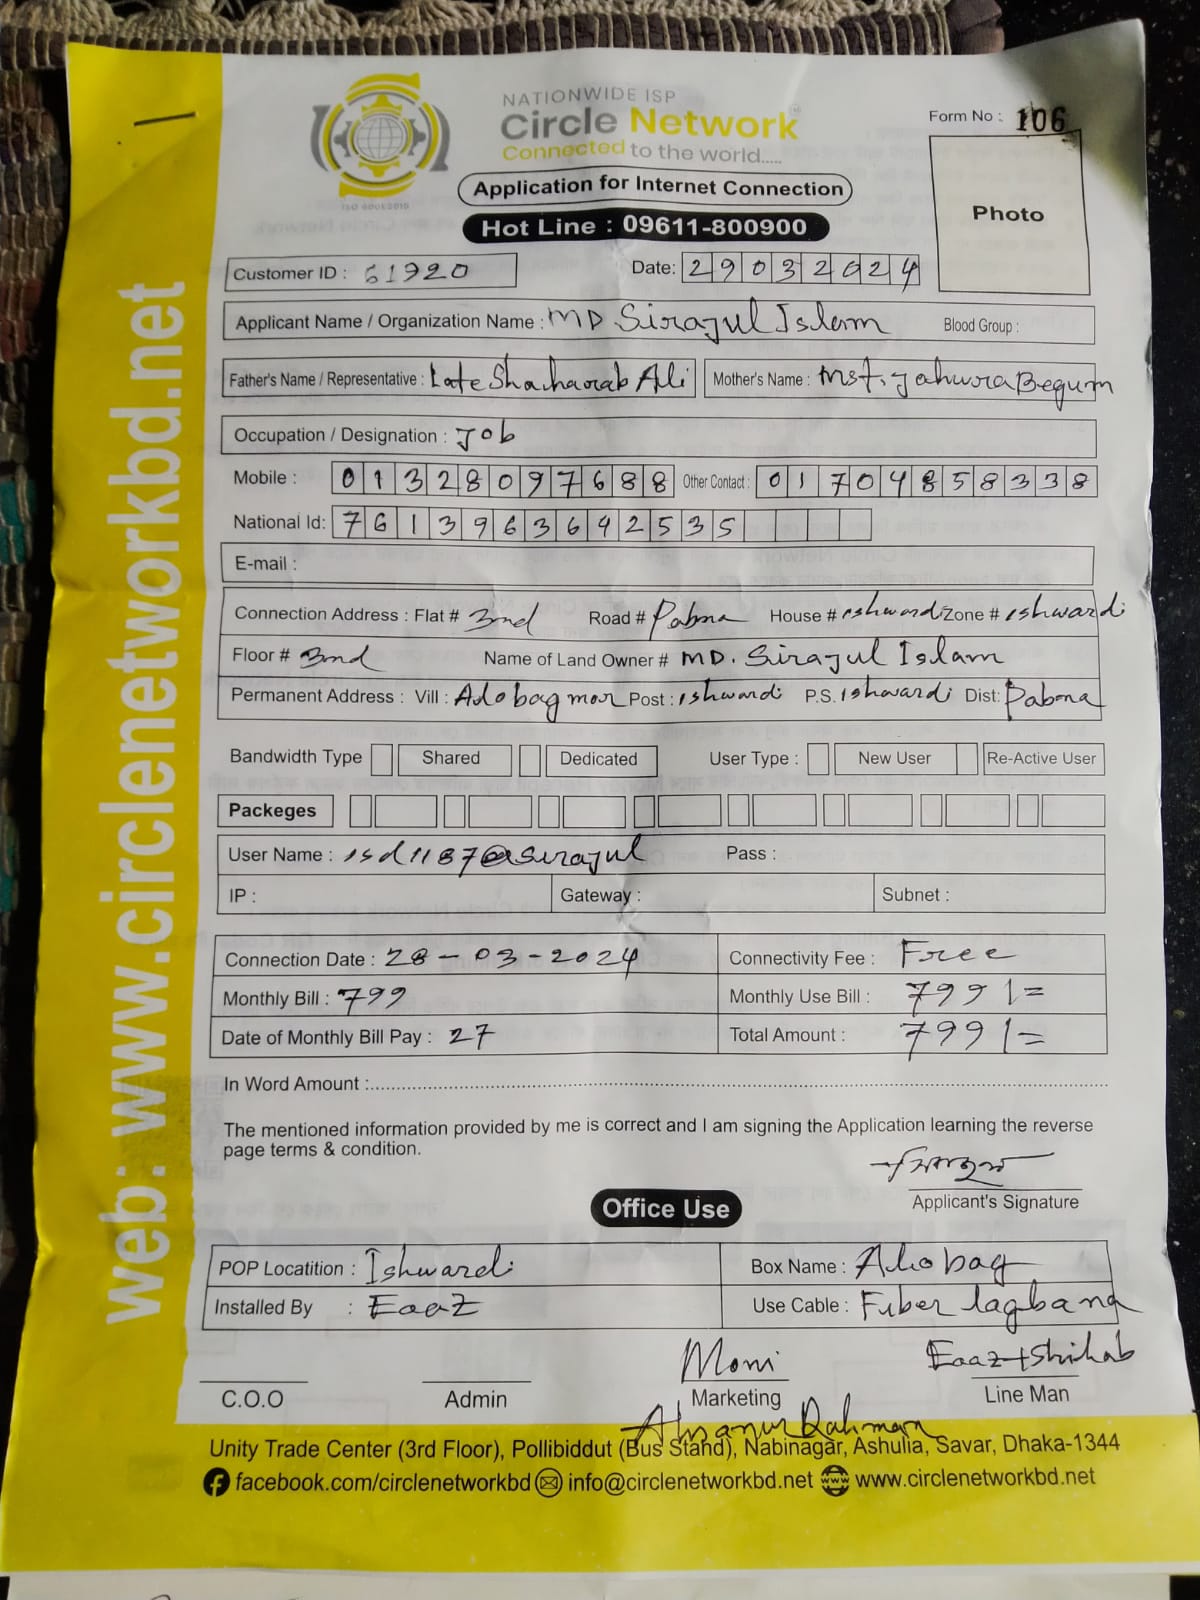 NATIONWIDE ISP
Circle Network
Connected to the world.....
ISO 9001:2015
Form No : 106
Photo
Application for Internet Connection
Hot Line : 09611-800900
Customer ID : 61920 Date: 29032024
Applicant Name / Organization Name : MD Sirajul Islam Blood Group :
Father's Name / Representative : Late Shaharab Ali Mother's Name : Mst. Jahura Begum
Occupation / Designation : Job
Mobile : 01328097688 Other Contact : 01704858338
National Id: 7613963642535
E-mail :
Connection Address : Flat # 3nd Road # Pabna House # ishwardi Zone # ishwardi
Floor # 3nd Name of Land Owner # MD. Sirajul Islam
Permanent Address : Vill : Alobag mor Post : ishwardi P.S. Ishwardi Dist: Pabna
Bandwidth Type Shared Dedicated User Type : New User Re-Active User
Packeges
User Name : isd1187@sirajul Pass :
IP : Gateway : Subnet :
Connection Date : 28-03-2024 Connectivity Fee : Free
Monthly Bill : 799 Monthly Use Bill : 799/=
Date of Monthly Bill Pay : 27 Total Amount : 799/=
In Word Amount :
The mentioned information provided by me is correct and I am signing the Application learning the reverse
page terms & condition.
সিরাজুল
Applicant's Signature
Office Use
POP Locatition : Ishwardi Box Name : Alobag
Installed By : Eaaz Use Cable : Fiber lagbana
Moni Eaaz+Shihab
C.O.O Admin Marketing Line Man
Ahsanur Rahman
Unity Trade Center (3rd Floor), Pollibiddut (Bus Stand), Nabinagar, Ashulia, Savar, Dhaka-1344
facebook.com/circlenetworkbd info@circlenetworkbd.net www.circlenetworkbd.net
web: www.circlenetworkbd.net